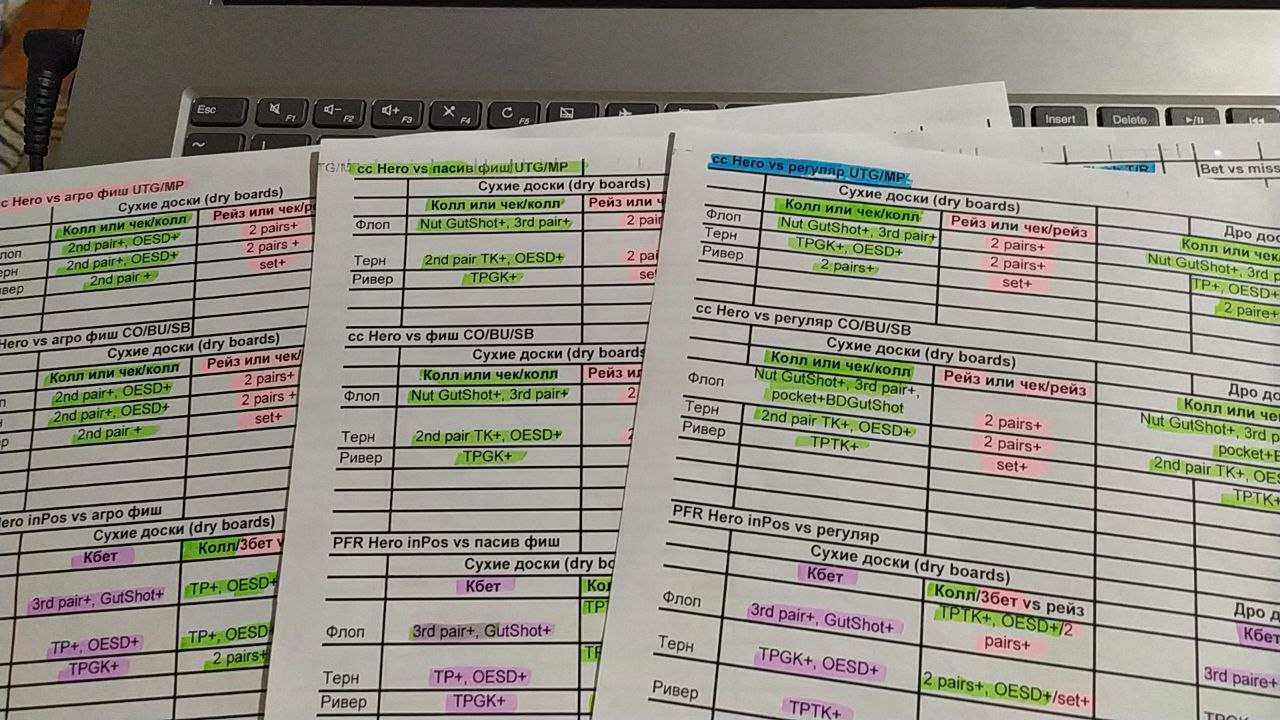 Esc F1 F2 F3 F4 F5 Insert Delete
~
Bet vs miss
cc Hero vs агро фиш UTG/MP
Сухие доски (dry boards)
Колл или чек/колл Рейз или чек/
2nd pair+, OESD+ 2 pairs+
Терн 2nd pair+, OESD+ 2 pairs +
Ривер 2nd pair + set+
Hero vs агро фиш CO/BU/SB
Сухие доски (dry boards)
Колл или чек/колл Рейз или чек/
2nd pair+, OESD+ 2 pairs+
2nd pair+, OESD+ 2 pairs +
2nd pair + set+
Hero inPos vs агро фиш
Сухие доски (dry boards)
Кбет Колл/3бет
3rd pair+, GutShot+ TP+, OESD+
TP+, OESD+ TP+, OESD
TPGK+ 2 pairs+
cc Hero vs пасив фиш UTG/MP
Сухие доски (dry boards)
Колл или чек/колл Рейз или
Флоп Nut GutShot+, 3rd pair+ 2 pair
Терн 2nd pair TK+, OESD+ 2
Ривер TPGK+ set
cc Hero vs фиш CO/BU/SB
Сухие доски (dry boards
Колл или чек/колл
Флоп Nut GutShot+, 3rd pair+ 2
Терн 2nd pair TK+, OESD+
Ривер TPGK+
PFR Hero inPos vs пасив фиш
Сухие доски (dry bo
Кбет
Флоп 3rd pair+, GutShot+
Терн TP+, OESD+
Ривер TPGK+
cc Hero vs регуляр UTG/MP
Сухие доски (dry boards)
Колл или чек/колл Рейз или чек/рейз Дро
Флоп Nut GutShot+, 3rd pair+ 2 pairs+ Колл или
Терн TPGK+, OESD+ 2 pairs+ Nut GutShot+, 3rd
Ривер 2 pairs+ set+ TP+, OESD+
2 paire+
cc Hero vs регуляр CO/BU/SB
Сухие доски (dry boards)
Колл или чек/колл Рейз или чек/рейз Дро
Флоп Nut GutShot+, 3rd pair+, Колл или
pocket+BDGutShot 2 pairs+ Nut GutShot+, 3rd
Терн 2nd pair TK+, OESD+ 2 pairs+
Ривер TPTK+ set+ 2nd pair TK+, OES
TPTK+
PFR Hero inPos vs регуляр
Сухие доски (dry boards)
Кбет Колл/3бет vs рейз Дро
Флоп 3rd pair+, GutShot+ TPTK+, OESD+/2 Кбет
pairs+
Терн TPGK+, OESD+ 2 pairs+, OESD+/set+ 3rd paire+
Ривер TPTK+